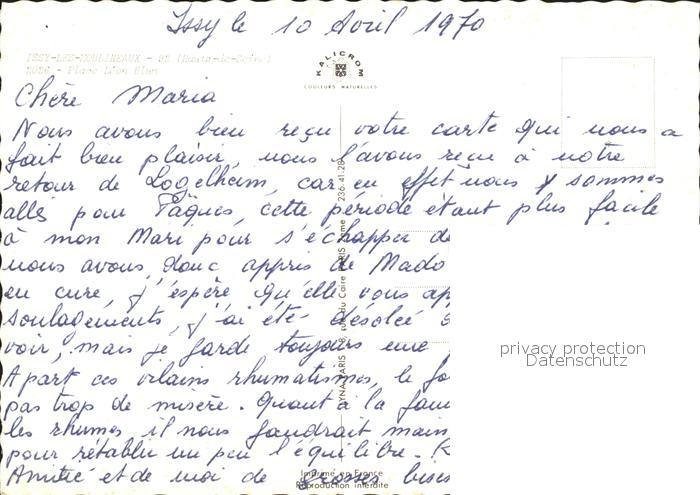 Issy le 10 Avril 1970
ISSY-LES-MOULINEAUX - 92 (Hauts-de-Seine)
Place Léon Blum
KALICROM
COULEURS NATURELLES
Chère Maria
Nous avons bien reçu votre carte qui nous a
fait bien plaisir, nous l'avons reçue à notre
retour de Logelheim, car en effet nous y sommes
allés pour Pâques, cette période étant plus facile
à mon Mari pour s'échapper de
nous avons, donc appris de Mado
en cure, j'espère qu'elle vous ap
soulagements, j'ai été désolée
voir, mais je garde toujours une
A part ces vilains rhumatismes, le
pas trop de misère. Quant à la
les rhumes il nous faudrait main
pour rétablir un peu l'équilibre.
Amitié et de moi de grosses bises
236.41.28
rue du Caire PARIS
Imprimé en France
Reproduction interdite
privacy protection
Datenschutz